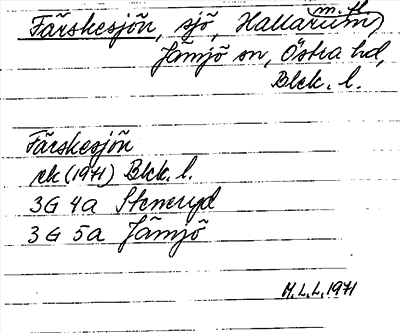 Färskesjön, sjö, Hallarum m.fl.
Jämjö sn, Östra hd,
Blek. l.
Färskesjön
ek (1971) Blek. l.
3G 4a Steneryd
3G 5a Jämjö
M.L.L. 1971